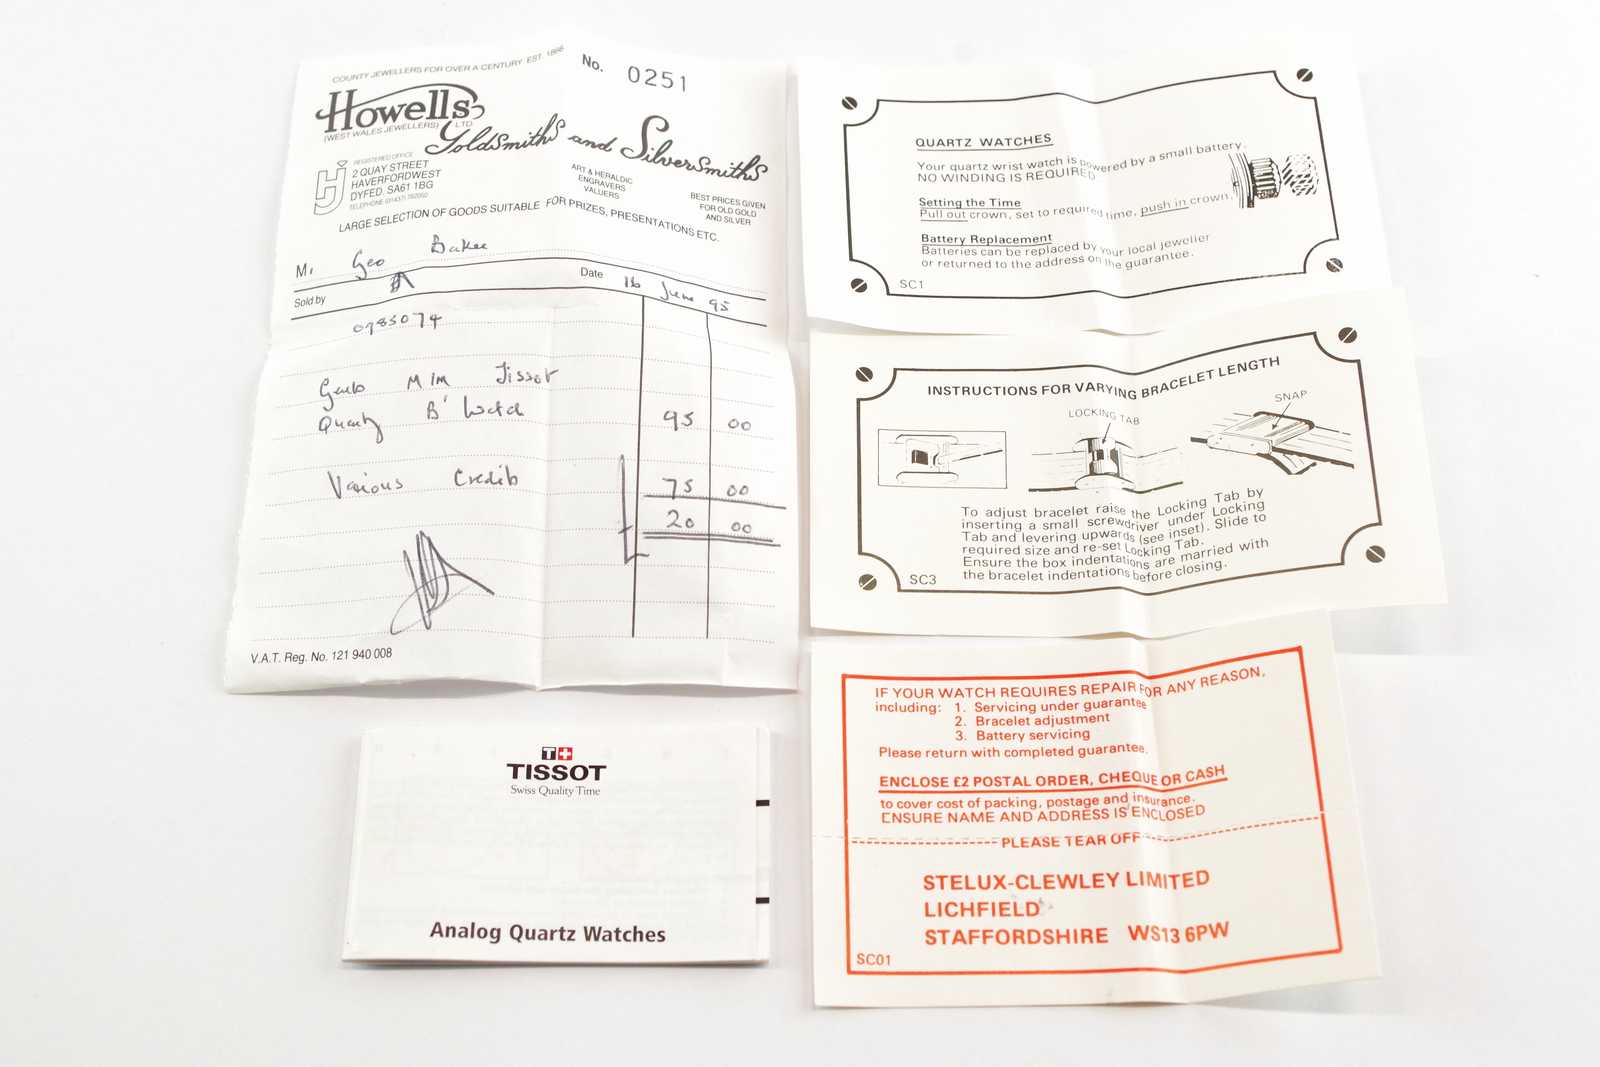 COUNTY JEWELLERS FOR OVER A CENTURY EST. 1866
No. 0251
Howells
(WEST WALES JEWELLERS) LTD.
Goldsmiths and Silversmiths
HJ
REGISTERED OFFICE
2 QUAY STREET
HAVERFORDWEST
DYFED. SA61 1BG
TELEPHONE (01437) 762050
ART & HERALDIC
ENGRAVERS
VALUERS
BEST PRICES GIVEN
FOR OLD GOLD
AND SILVER
LARGE SELECTION OF GOODS SUITABLE FOR PRIZES, PRESENTATIONS ETC.
M. Geo Baker
Sold by
Date 16 June 95
0983074
Gents M/M Tissot
Quartz B' Watch 95 00
Various Credits 75 00
20 00
V.A.T. Reg. No. 121 940 008
TISSOT
Swiss Quality Time
Analog Quartz Watches
QUARTZ WATCHES
Your quartz wrist watch is powered by a small battery.
NO WINDING IS REQUIRED
Setting the Time
Pull out crown, set to required time, push in crown.
Battery Replacement
Batteries can be replaced by your local jeweller
or returned to the address on the guarantee.
SC1
INSTRUCTIONS FOR VARYING BRACELET LENGTH
LOCKING TAB
SNAP
To adjust bracelet raise the Locking Tab by
inserting a small screwdriver under Locking
Tab and levering upwards (see inset). Slide to
required size and re-set Locking Tab.
Ensure the box indentations are married with
the bracelet indentations before closing.
SC3
IF YOUR WATCH REQUIRES REPAIR FOR ANY REASON,
including: 1. Servicing under guarantee
2. Bracelet adjustment
3. Battery servicing
Please return with completed guarantee.
ENCLOSE £2 POSTAL ORDER, CHEQUE OR CASH
to cover cost of packing, postage and insurance.
ENSURE NAME AND ADDRESS IS ENCLOSED
PLEASE TEAR OFF
STELUX-CLEWLEY LIMITED
LICHFIELD
STAFFORDSHIRE WS13 6PW
SC01